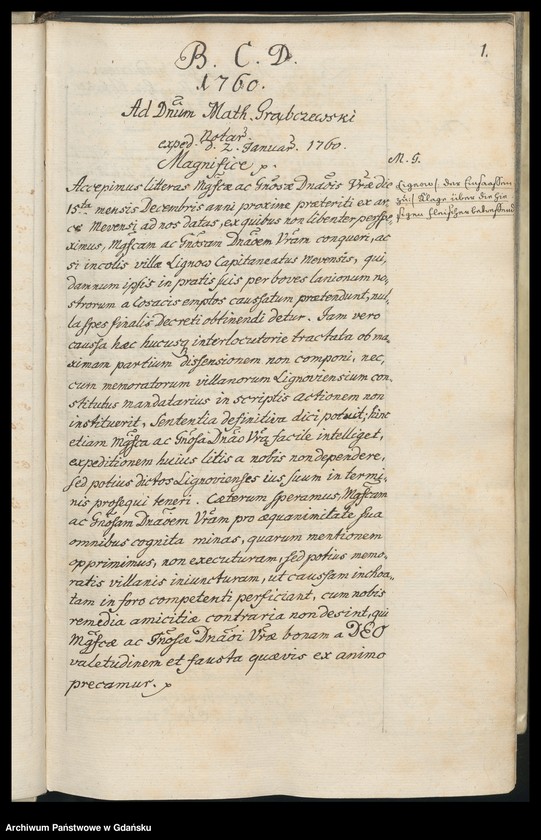 1.
B. C. D.
1760.
Ad Dnūm Math. Grąbczewski
Notar.
exped. d. 2. Januar. 1760.
Magnifice p.
M. G.
Lignow
Accepimus litteras Mgfcæ ac Gnōsæ Dnāōis Vrǣ die
15.ta mensis Decembris anni proxime præteriti ex ar,
ce Mevensi ad nos datas, ex quibus non libenter perspe,
ximus, Mgfcam ac Gnōsam Dnāōem Vrām conqueri, ac
si incolis villæ Lignow Capitaneatus Mevensis, qui,
damnum ipsis in pratis suis per boves lanionum no,
strorum a Cosacis emptos caussatum prætendunt, nul,
la spes finalis decreti obtinendi detur. Jam vero
caussa hæc hucusq interlocutorie tractata ob ma,
ximam partium dissensionem non componi, nec,
cum memoratorum villanorum Lignoviensium con,
stitutus mandatarius in scriptis actionem non
instituerit, Sententia definitiva dici potuit; hinc
etiam Mgfca ac Gnōsa Dnāo Vrā facile intelliget,
expeditionem huius litis a nobis non dependere,
sed potius dictos Lignovienses ius suum in termi,
nis prosequi teneri. Cæterum speramus, Mgfcam
ac Gnōsam Dnāōem Vrām pro æquanimitate sua
omnibus cognita minas, quarum mentionem
opprimimus, non executuram, sed potius memo,
ratis villanis iniuncturam, ut caussam inchoa,
tam in foro competenti perficiant, cum nobis
remedia amicitiæ contraria non desint, qui
Mgfcæ ac Gnōsæ Dnāōi Vrǣ bonam a DEO
valetudinem et fausta quævis ex animo
precamur. p
Archiwum Państwowe w Gdańsku